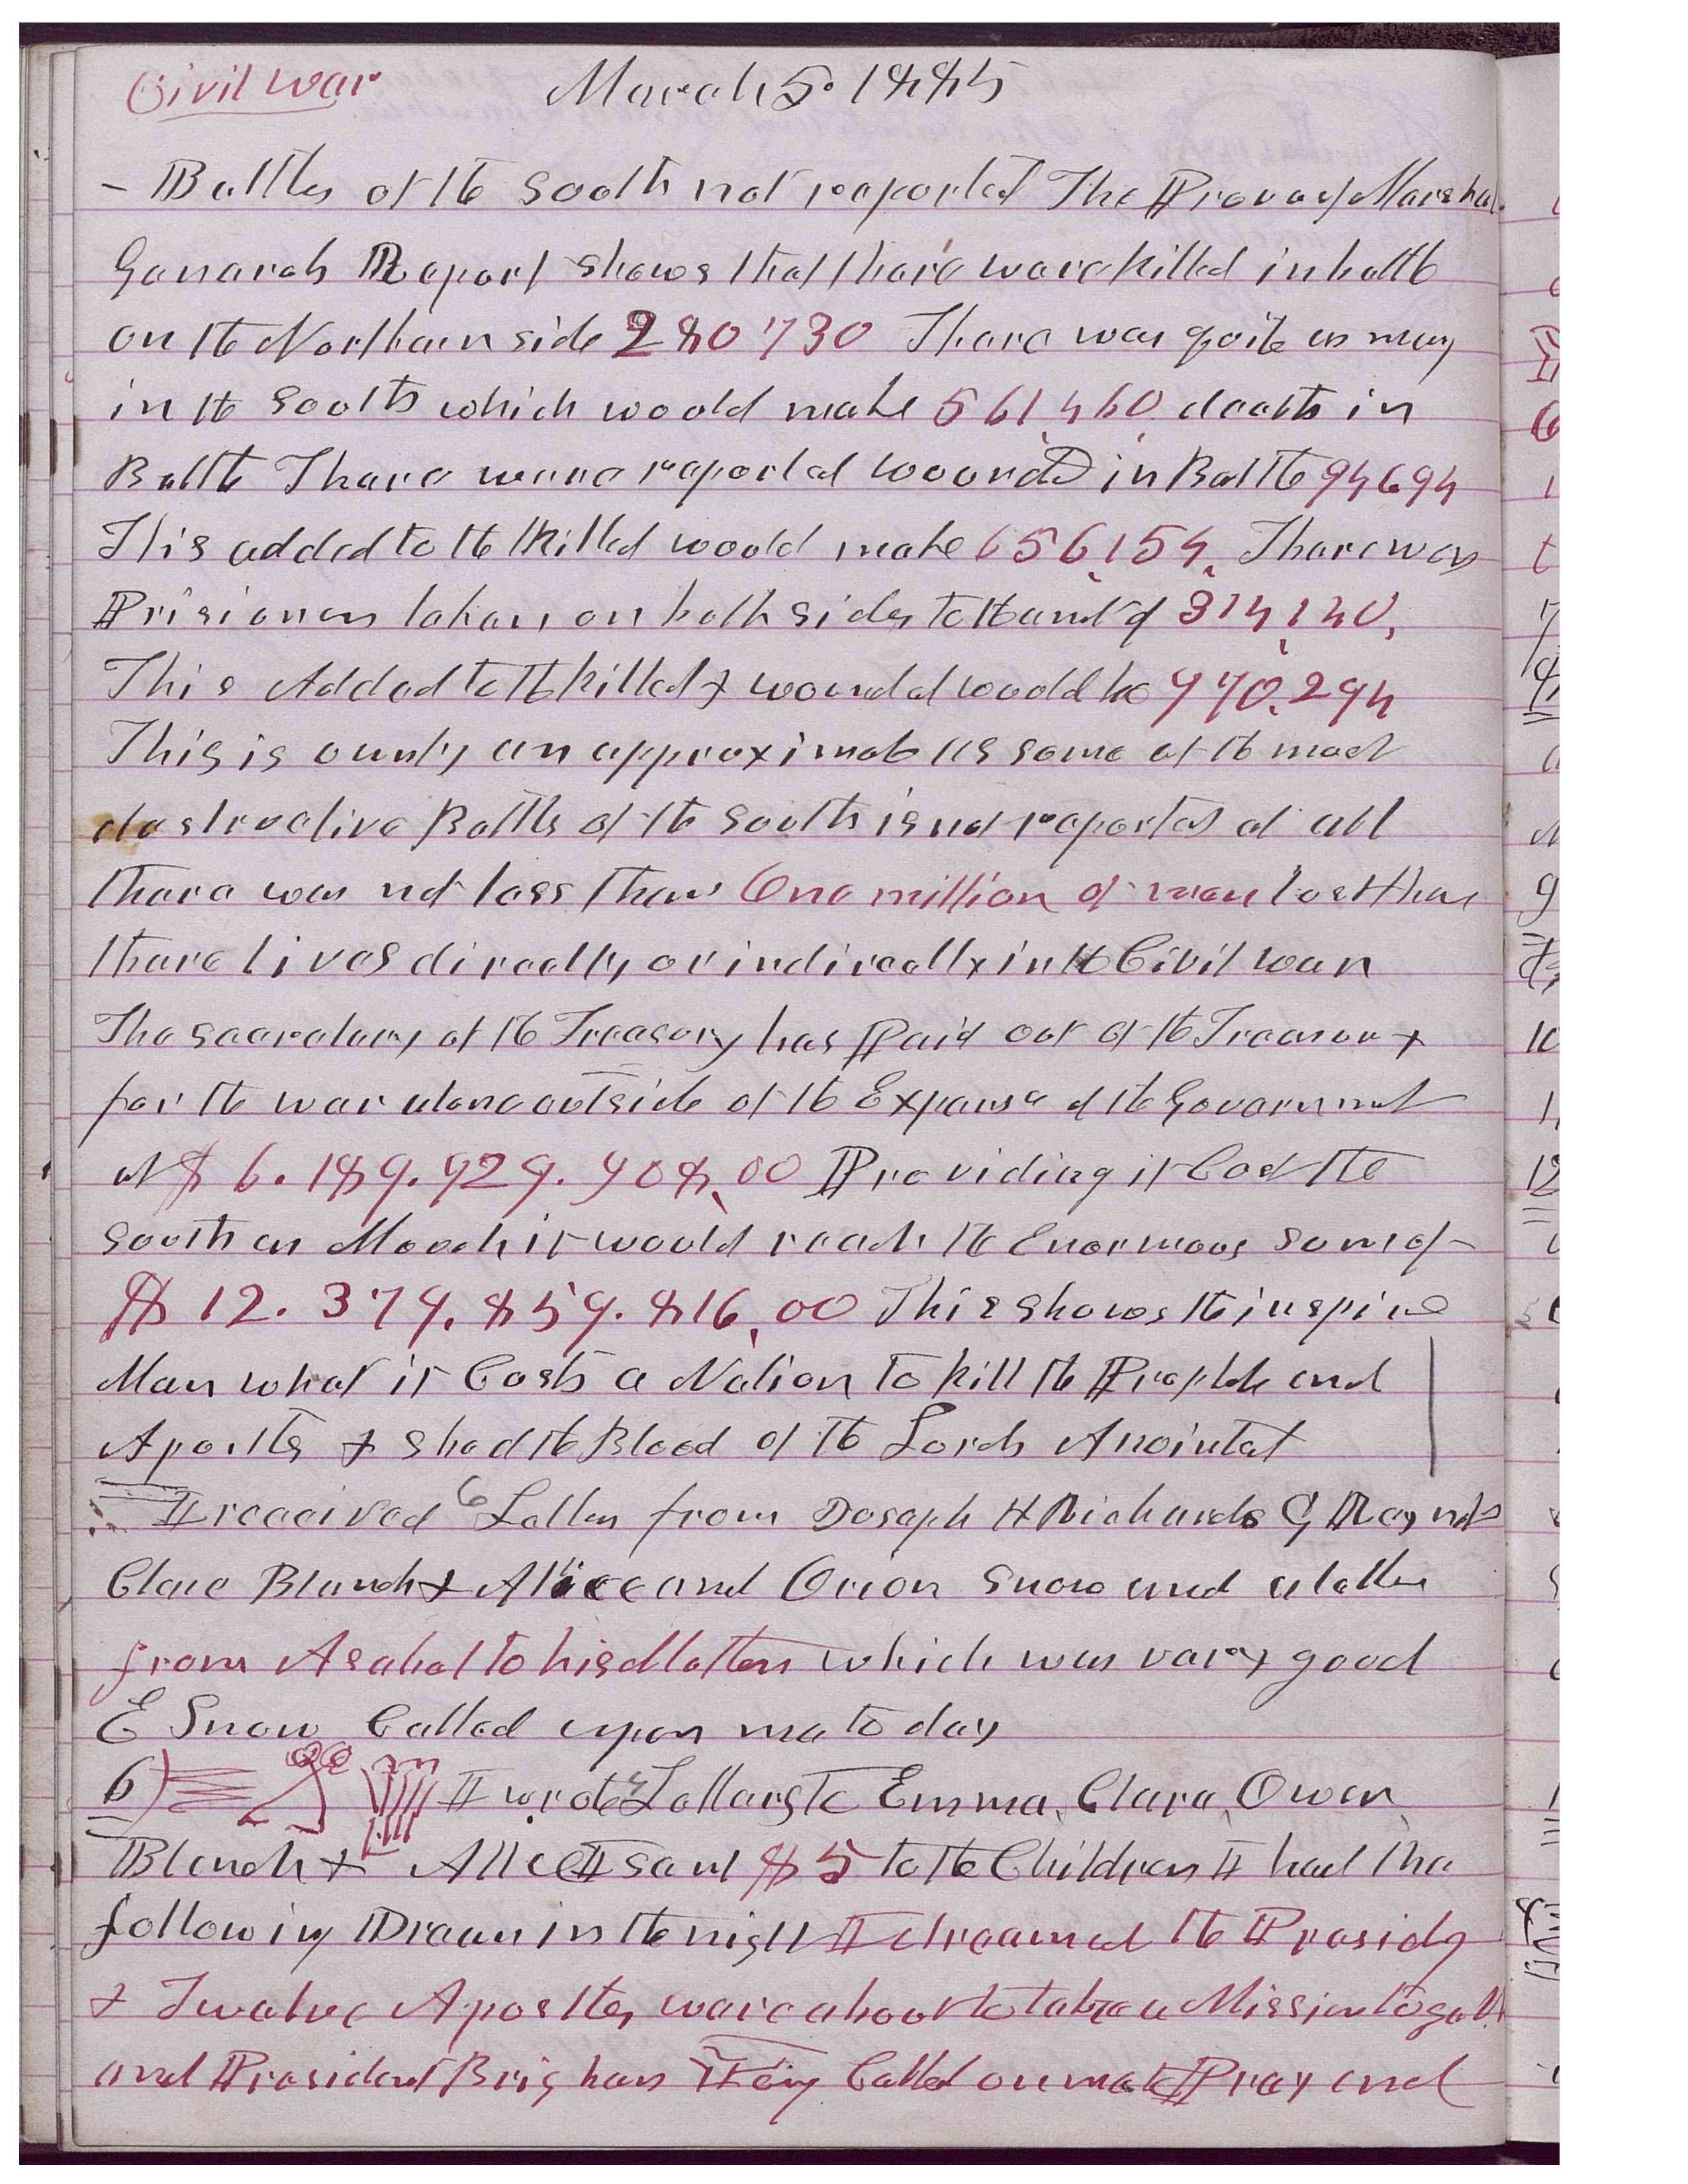 Civil War March 5. 1885
- Battles of the South not reported The Provay Marshal
Generals Report shows that there were killed in battle
on the Northern side 280730 There was quite as many
in the South which would make 561,460, deaths in
Battle There were reported wound in Battle 94694
This added to the Killed would make 656,154, There was
Prisioners taken on both sides to the amt of 314,140,
This Added to the killed & wounded would be 970,294
This is ounly an approximate as some of the most
destructive Battles of the South is not reported at all
there was not less than One million of men lost than
there lives directly or indirectly in the Civil war
The Secretary of the Treasury has Paid out of the Treasury
for the war alone outside of the Expense of the Government
at $6.189.929.908,00 Providing it Cost the
South as Much it would reach the Enormous Sum of
$12.379.859.816,00 This shows the inspired
Man what it Costs a Nation to kill the Prophets and
Apostles & shed the Blood of the Lords Anointed
I received 6 Letters from Joseph H Richards G Raynolds
Clara Blanch & Alice and Orion Snow and a letter
from Asahel to his Mother which was very good
E Snow Called upon me to day
6) I wrote 4 Letters to Emma, Clara, Owen
Blanch & Alice I sent $5 to the Children I had the
following Dream in the night I dreamed the Presidy
& Twelve Apostles were about to take a Mission together
and President Brigham Young Called on me to Pray and